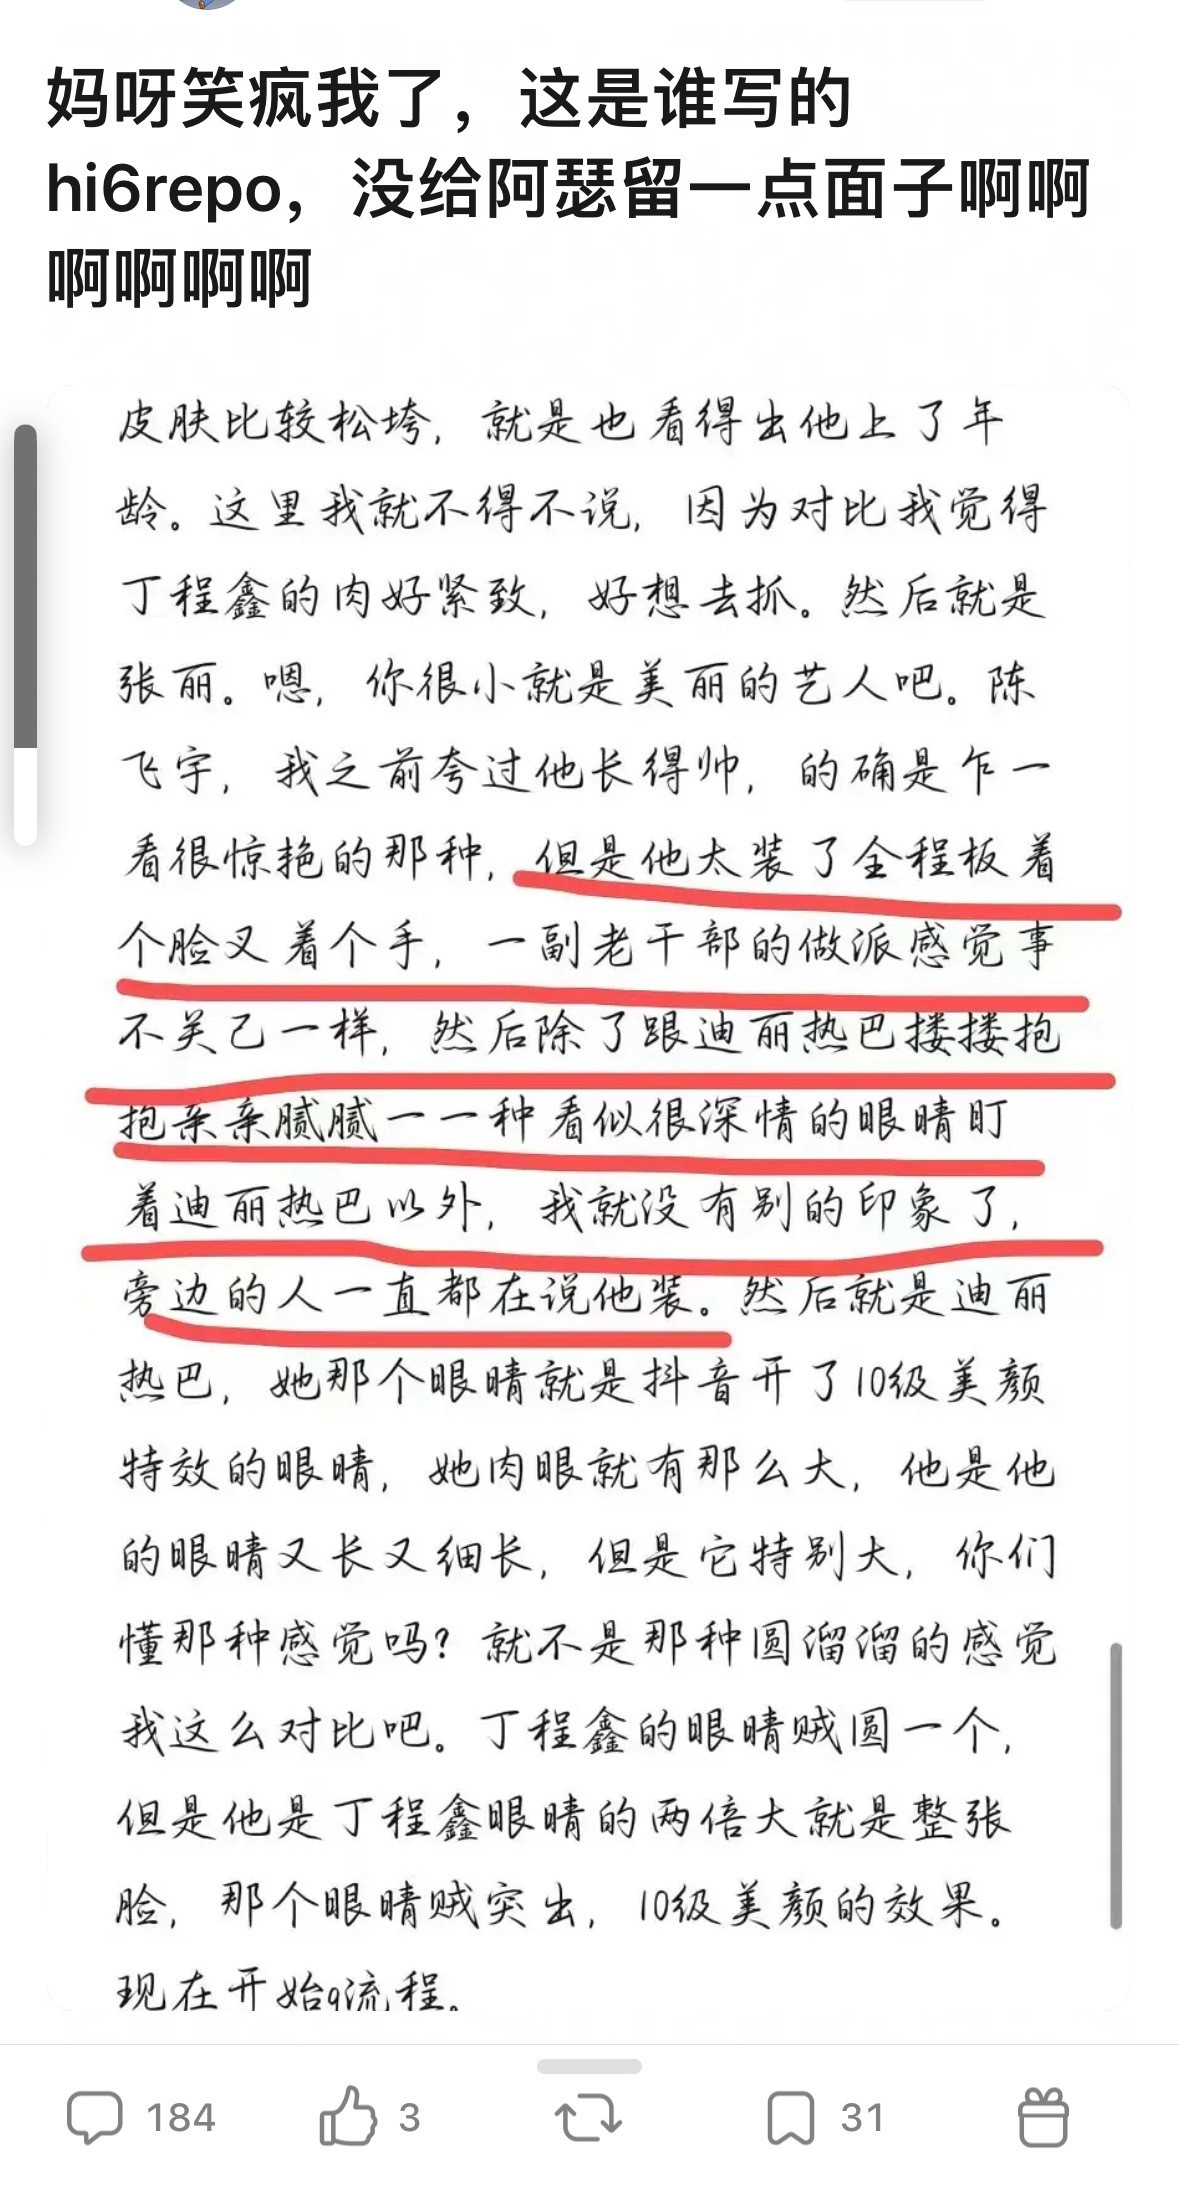 妈呀笑疯我了，这是谁写的
hi6repo，没给阿瑟留一点面子啊啊
啊啊啊啊
皮肤比较松垮，就是也看得出他上了年
龄。这里我就不得不说，因为对比我觉得
丁程鑫的肉好紧致，好想去抓。然后就是
张丽。嗯，你很小就是美丽的艺人吧。陈
飞宇，我之前夸过他长得帅，的确是乍一
看很惊艳的那种，但是他太装了全程板着
个脸叉着个手，一副老干部的做派感觉事
不关己一样，然后除了跟迪丽热巴搂搂抱
抱亲亲腻腻一一种看似很深情的眼睛盯
着迪丽热巴以外，我就没有别的印象了，
旁边的人一直都在说他装。然后就是迪丽
热巴，她那个眼睛就是抖音开了10级美颜
特效的眼睛，她肉眼就有那么大，他是他
的眼睛又长又细长，但是它特别大，你们
懂那种感觉吗？就不是那种圆溜溜的感觉
我这么对比吧。丁程鑫的眼睛贼圆一个，
但是他是丁程鑫眼睛的两倍大就是整张
脸，那个眼睛贼突出，10级美颜的效果。
现在开始q流程。
184
3
31